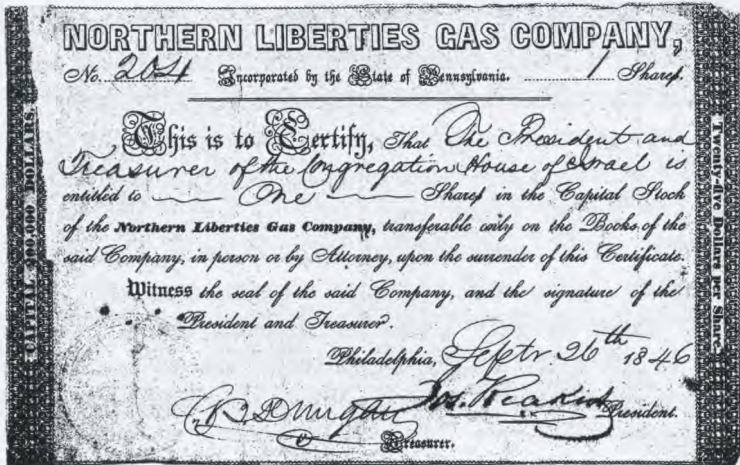 NORTHERN LIBERTIES GAS COMPANY,
No. 204 Incorporated by the State of Pennsylvania. 1 Shares.
This is to Certify, That The President and
Treasurer of the Congregation House of Israel is
entitled to One Shares in the Capital Stock
of the Northern Liberties Gas Company, transferable only on the Books of the
said Company, in person or by Attorney, upon the surrender of this Certificate.
Witness the seal of the said Company, and the signature of the
President and Treasurer.
Philadelphia, Septr 26th 1846
Jos. President.
Treasurer.
CAPITAL DOLLARS.
Twenty-five Dollars per Share.